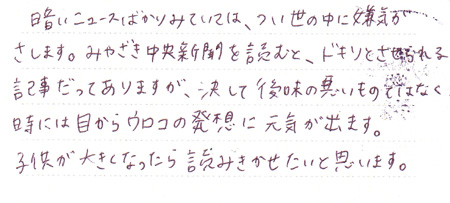 暗いニュースばかりみていては、つい世の中に嫌気が
さします。みやざき中央新聞を読むと、ドキリとさせられる
記事だってありますが、決して後味の悪いものではなく、
時には目からウロコの発想に元気が出ます。
子供が大きくなったら読みきかせたいと思います。